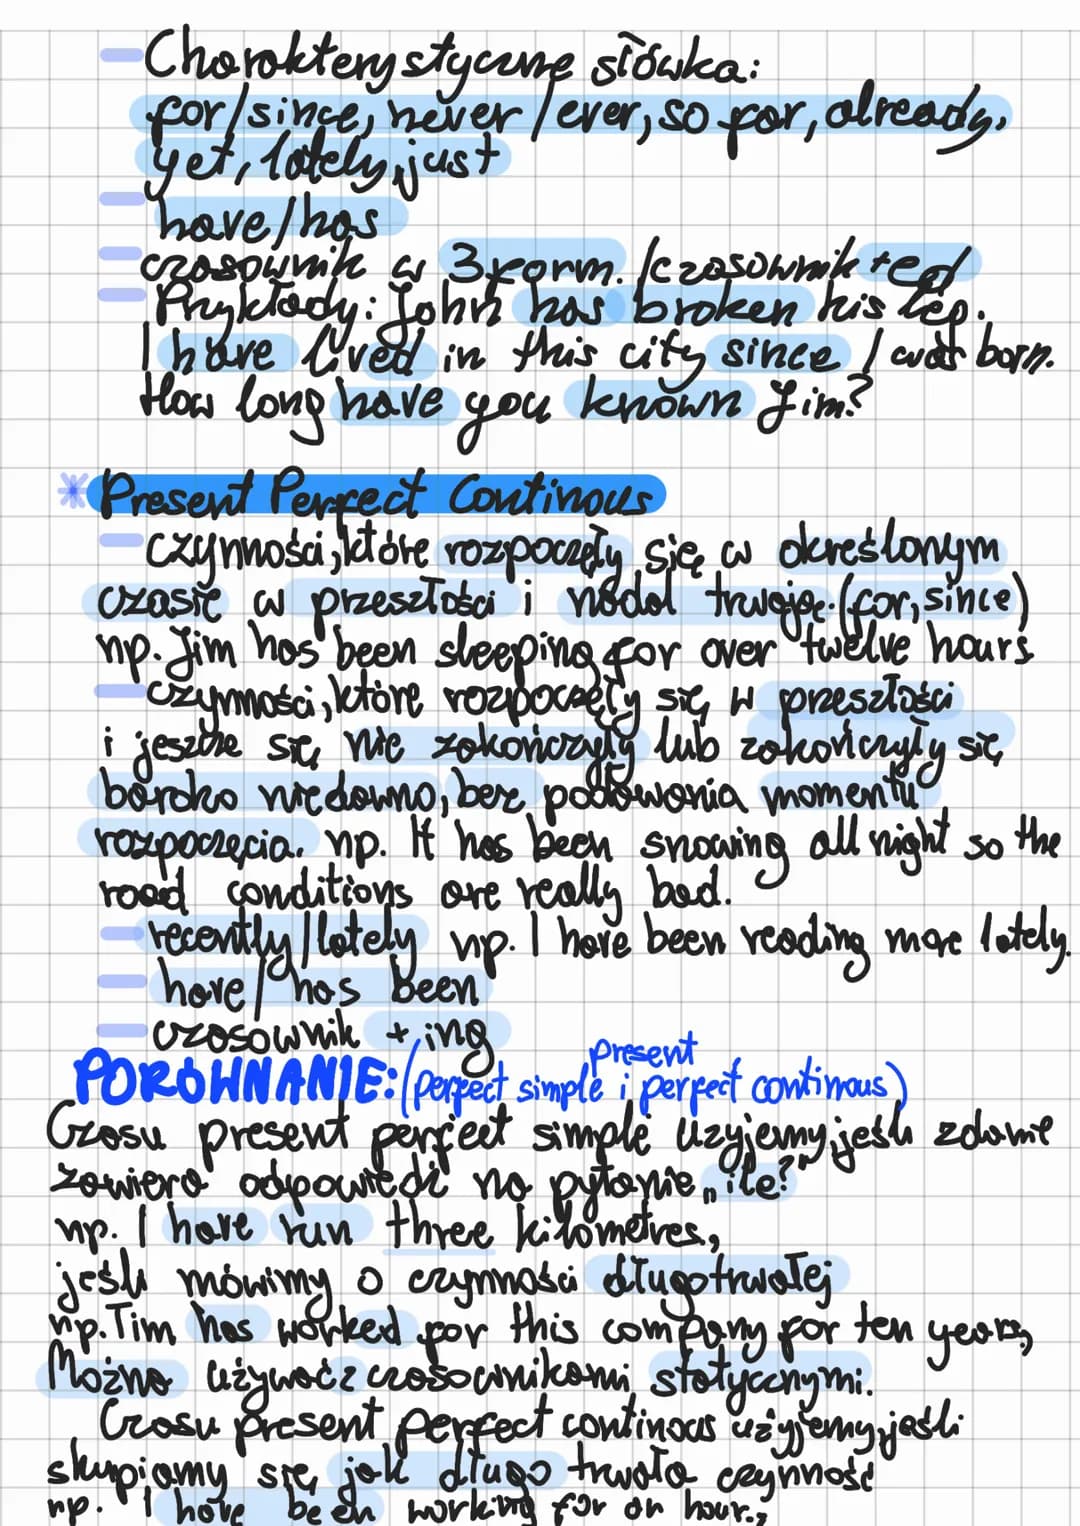 Charakterystyczne słówka:
for/since, never/ever, so far, already,
yet, lately, just
have/has
czasownik w 3 form. /czasownik +ed/
Przykłady: John has broken his leg.
I have lived in this city since I was born.
How long have you known Jim?
* Present Perfect Continous
czynności, które rozpoczęły się w określonym
czasie w przeszłości i nadal trwają. (for, since)
np. Jim has been sleeping for over twelve hours
czynności, które rozpoczęły się w przeszłości
i jeszcze się nie zakończyły lub zakończyły się
bardzo niedawno, bez podawania momentu
rozpoczęcia. np. It has been snowing all night so the
road conditions are really bad.
recently/lately np. I have been reading more lately.
have/has been
czasownik + ing
PORÓWNANIE: (present perfect simple i perfect continous)
Czasu present perfect simple użyjemy, jeśli zdanie
zawiera odpowiedź na pytanie „ile?"
np. I have run three kilometres,
jeśli mówimy o czynności długotrwałej
np. Tim has worked for this company for ten years,
Można używać z czasownikami statycznymi.
Czasu present perfect continous użyjemy, jeśli
skupiamy się, jak długo trwała czynność
np. I have been working for an hour.,